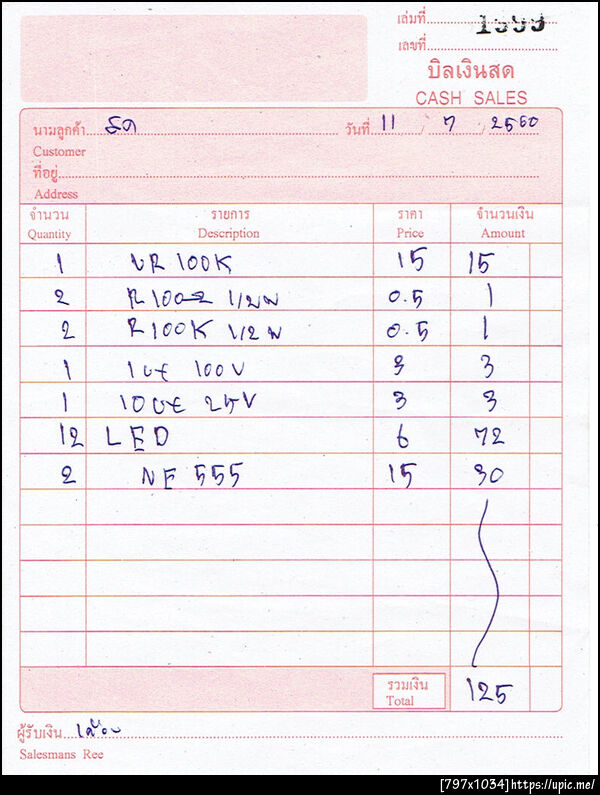 เล่มที่ 1399
เลขที่
บิลเงินสด
CASH SALES
นามลูกค้า สด วันที่ 11 / 7 / 2560
Customer
ที่อยู่
Address
จำนวน รายการ ราคา จำนวนเงิน
Quantity Description Price Amount
1 VR 100K 15 15
2 R100Ω 1/2W 0.5 1
2 R100K 1/2W 0.5 1
1 1uf 100V 3 3
1 10uf 25V 3 3
12 LED 6 72
2 NE 555 15 30
รวมเงิน
Total 125
ผู้รับเงิน
Salesmans Ree
[797x1034]https://upic.me/